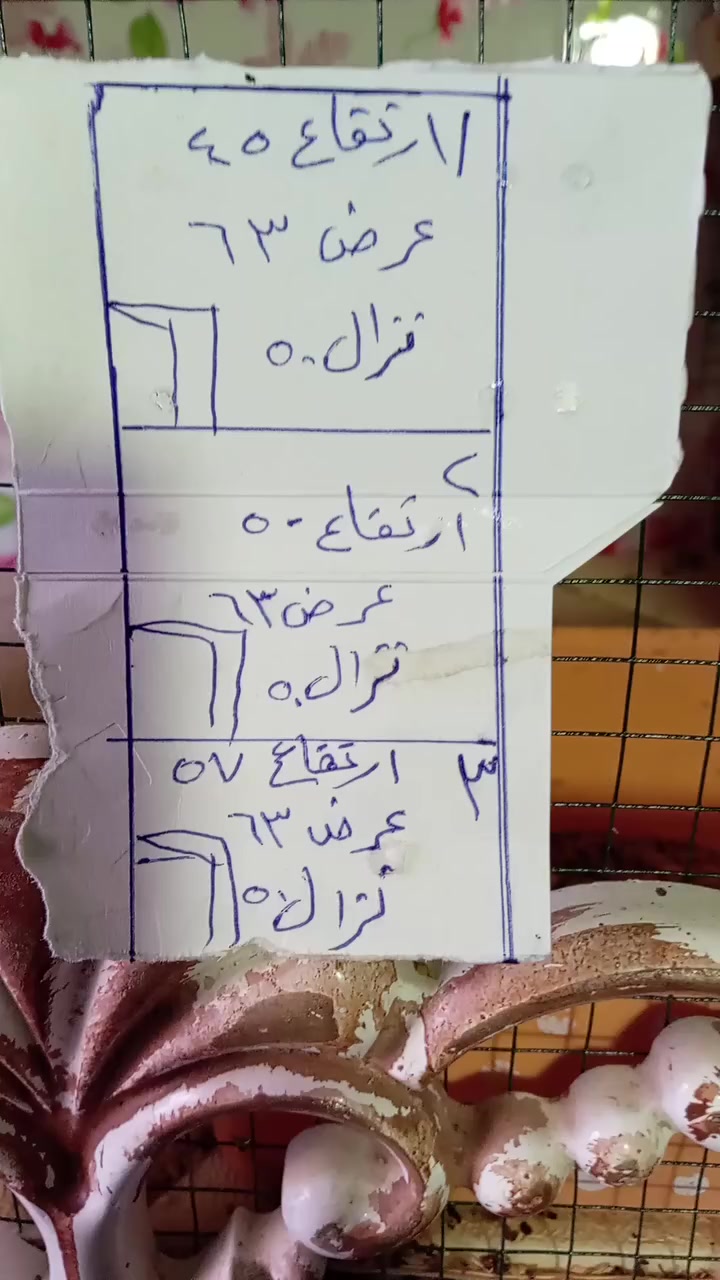 ١/ ارتفاع ٤٥
عرض ٦٣
تنزال ٥٠
٢
ارتفاع ٥٠
عرض ٦٣
تنزال ٥٠
٣ ارتفاع ٥٧
عرض ٦٣
نزال ٥٠